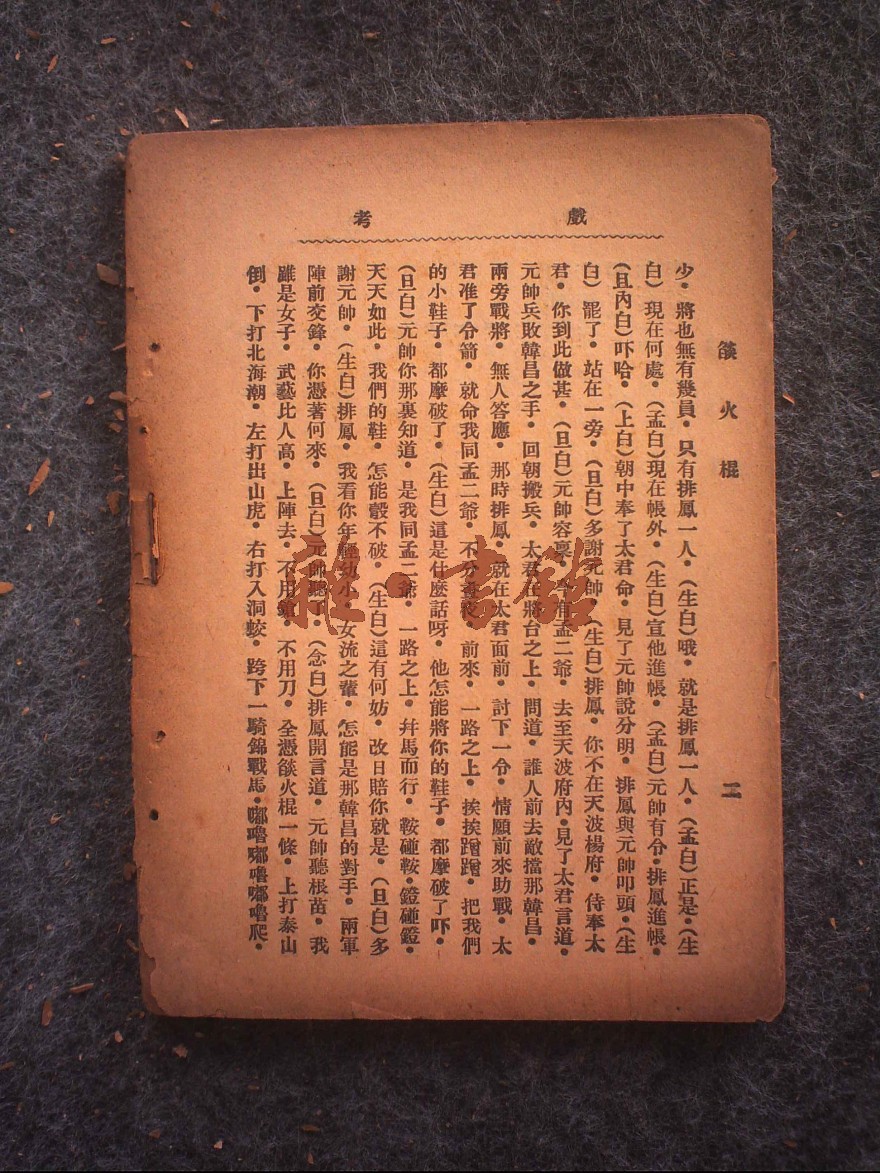 戲考
燄火棍
二
少•將也無有幾員•只有排鳳一人•(生白)哦•就是排鳳一人•(孟白)正是•(生
白)現在何處•(孟白)現在帳外•(生白)宣他進帳•(孟白)元帥有令•排鳳進帳•
(旦內白)吓哈•(上白)朝中奉了太君命•見了元帥說分明•排鳳與元帥叩頭•(生
白)罷了•站在一旁•(旦白)多謝元帥•(生白)排鳳•你不在天波楊府•侍奉太
君•你到此做甚•(旦白)元帥容禀•今有孟二爺•去至天波府內•見了太君言道•
元帥兵敗韓昌之手•回朝搬兵•太君在將台之上•問道•誰人前去敵擋那韓昌•
兩旁戰將•無人答應•那時排鳳•就在太君面前•討下一令•情願前來助戰•太
君准了令箭•就命我同孟二爺•不分 前來•一路之上•挨挨蹭蹭•把我們
的小鞋子•都摩破了•(生白)這是什麼話呀•他怎能將你的鞋子•都摩破了吓•
(旦白)元帥你那裏知道•是我同孟二爺•一路之上•幷馬而行•鞍碰鞍•鐙碰鐙•
天天如此•我們的鞋•怎能彀不破•(生白)這有何妨•改日賠你就是•(旦白)多
謝元帥•(生白)排鳳•我看你年輕幼小•女流之輩•怎能是那韓昌的對手•兩軍
陣前交鋒•你憑著何來•(旦白)元帥聽了•(念白)排鳳開言道•元帥聽根苗•我
雖是女子•武藝比人高•上陣去•不用鎗•不用刀•全憑燄火棍一條•上打泰山
倒•下打北海潮•左打出山虎•右打入洞蛟•跨下一騎錦戰馬•嘟嚕嘟嚕嘟嚕爬•
雜•書館